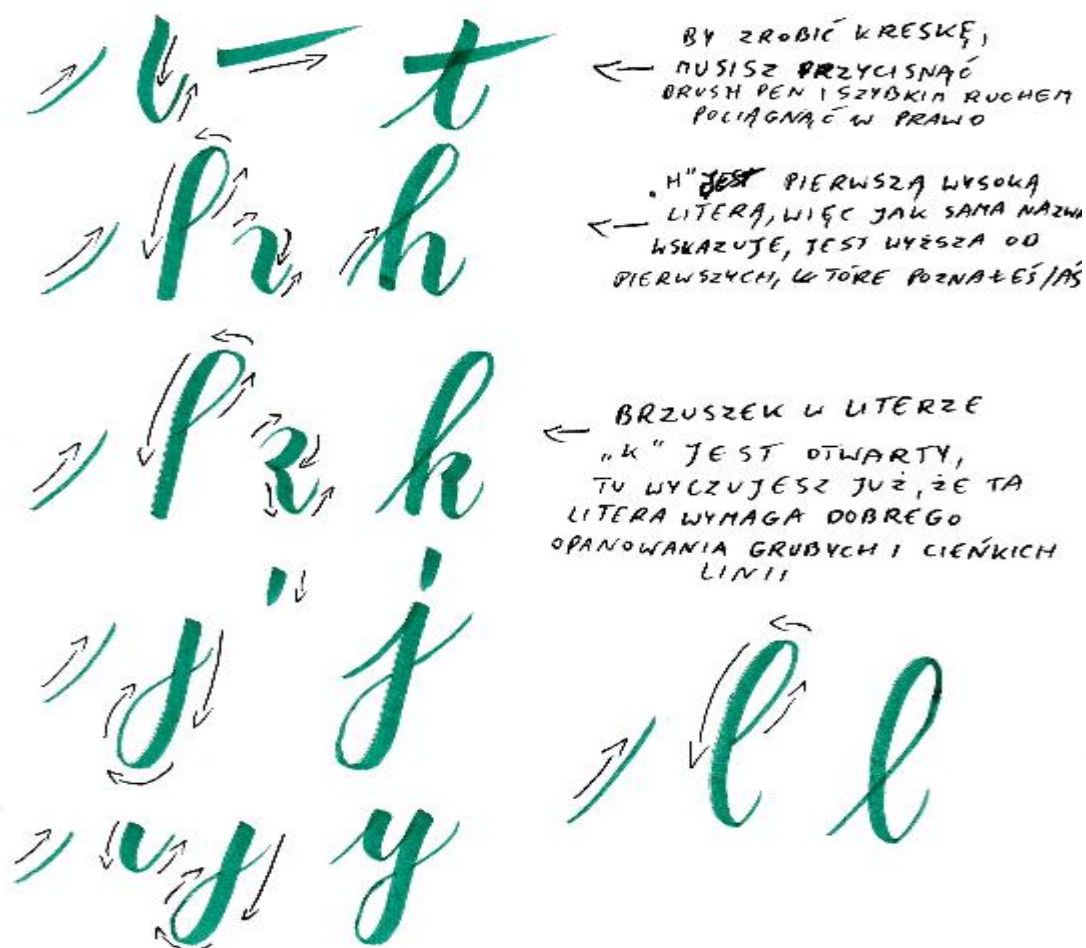 t
BY ZROBIĆ KRESKĘ,
MUSISZ PRZYCISNĄĆ
BRUSH PEN I SZYBKIM RUCHEM
POCIĄGNĄĆ W PRAWO
h
„H" JEST PIERWSZĄ WYSOKĄ
LITERĄ, WIĘC JAK SAMA NAZWA
WSKAZUJE, JEST WYŻSZA OD
PIERWSZYCH, KTÓRE POZNAŁEŚ/AŚ
k
BRZUSZEK W LITERZE
„K" JEST OTWARTY,
TU WYCZUJESZ JUŻ, ŻE TA
LITERA WYMAGA DOBREGO
OPANOWANIA GRUBYCH I CIEŃKICH
LINII
j
l l
y